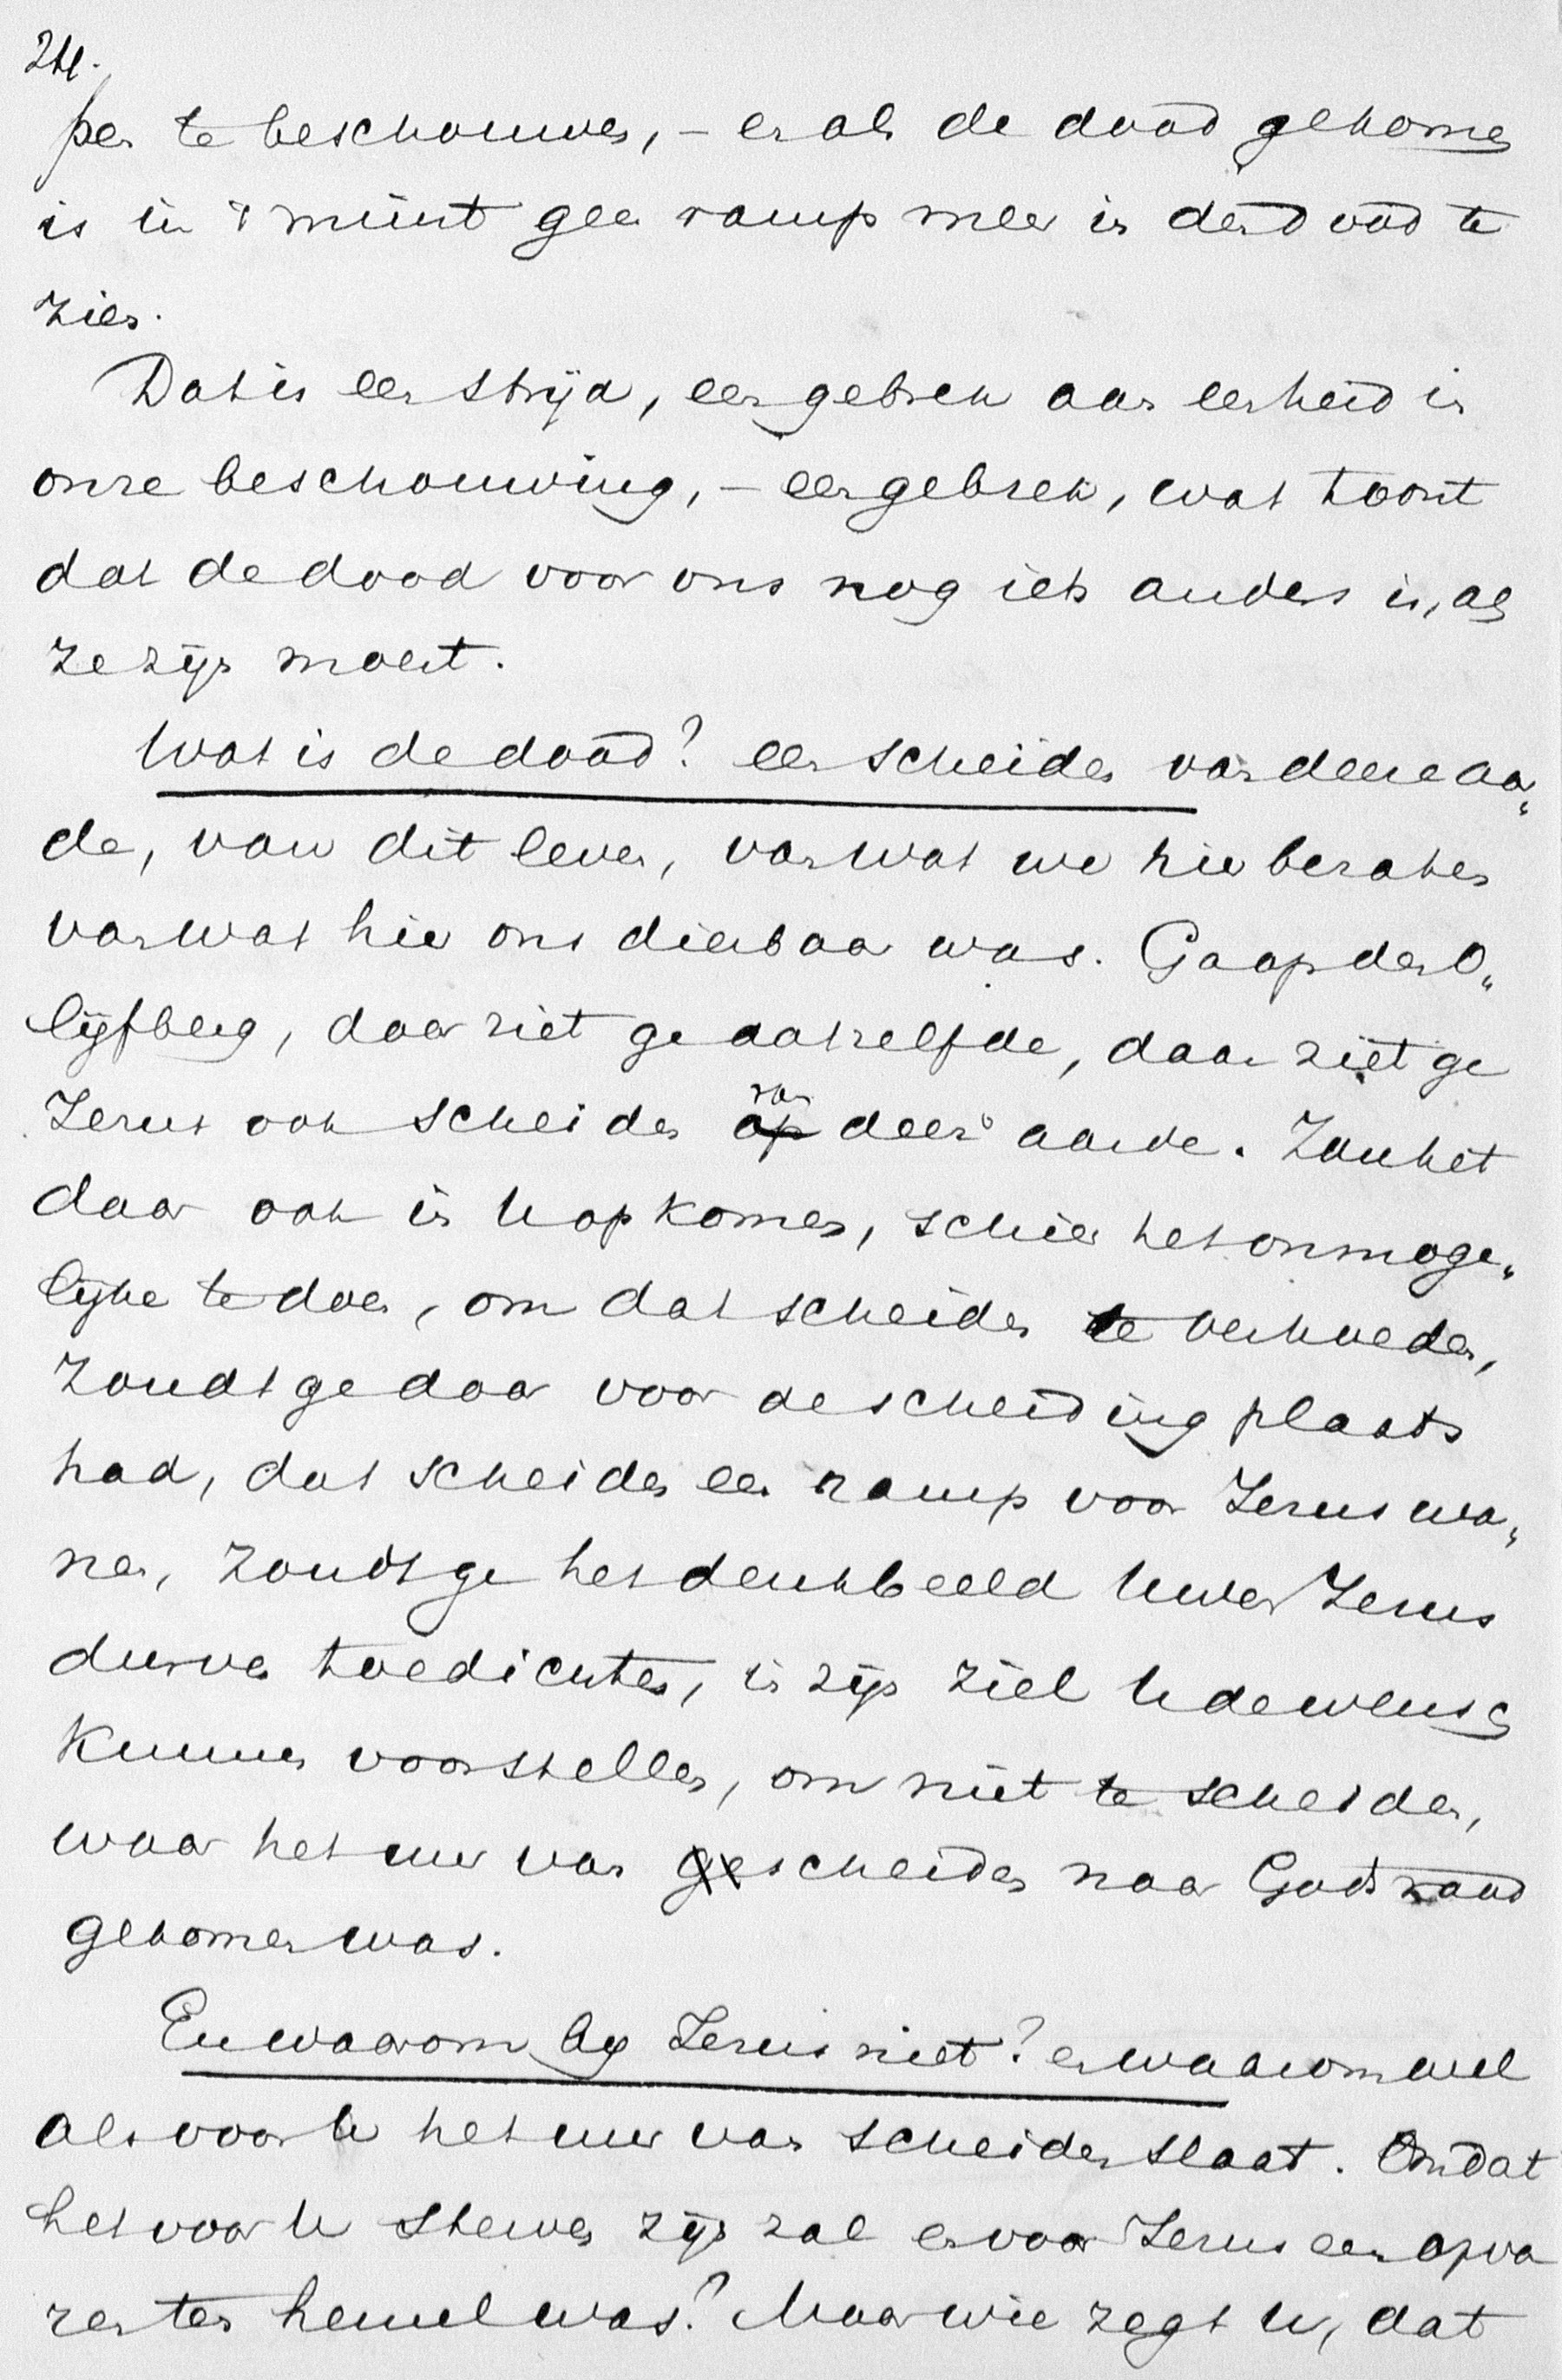 24.
pen te beschouwen, – en als de dood gekomen
is in 't minst geen ramp meer in den dood te
zien.
Dat is een strijd, een gebrek aan eenheid in
onze beschouwing, – een gebrek, wat toont
dat de dood voor ons nog iets anders is, als
ze zijn moest.
Wat is de dood? een scheiden van deze aar„
de, van dit leven, van wat we hier bezaten
van wat hier ons dierbaar was. Ga op den O„
lijfberg, daar ziet ge datzelfde, daar ziet ge
Jezus ook scheiden op van deez' aarde. Zou het
daar ook in U opkomen, schier het onmoge„
lijke te doen, om dat scheiden te verhoeden,
Zoudt ge daar voor de scheiding plaats
had, dat scheiden een ramp voor Jezus wa„
nen, zoudt ge het denkbeeld Uwen Jezus
durven toedichten, in zijn ziel U de wensch
kunnen voorstellen, om niet te scheiden,
waar het uur van ge scheiden naar Gods raad
gekomen was.
En waarom bij Jezus niet? en waarom wel
als voor U het uur van scheiden slaat. Omdat
het voor U sterven zijn zal en voor Jezus een opva
ren ten hemel was? Maar wie zegt U, dat